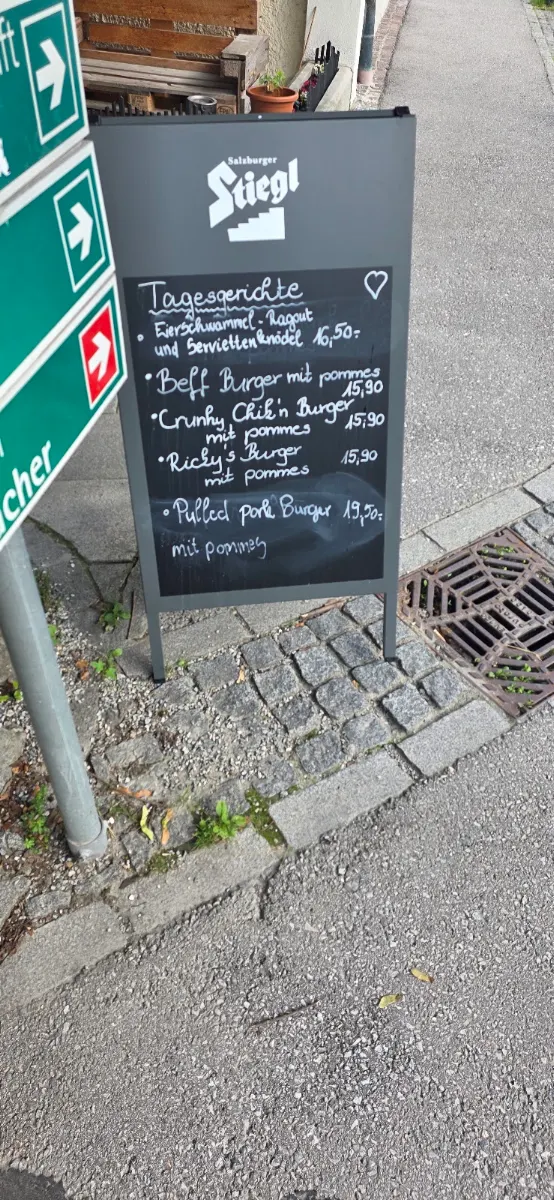 Salzburger
Stiegl
Tagesgerichte
Eierschwammel-Ragout
und Serviettenknödel 16,50-
Beff Burger mit pommes
15,90
Crunhy Chik'n Burger
mit pommes 15,90
Ricky's Burger 15,90
mit pommes
Pulled pork Burger 19,50-
mit pommes
cher